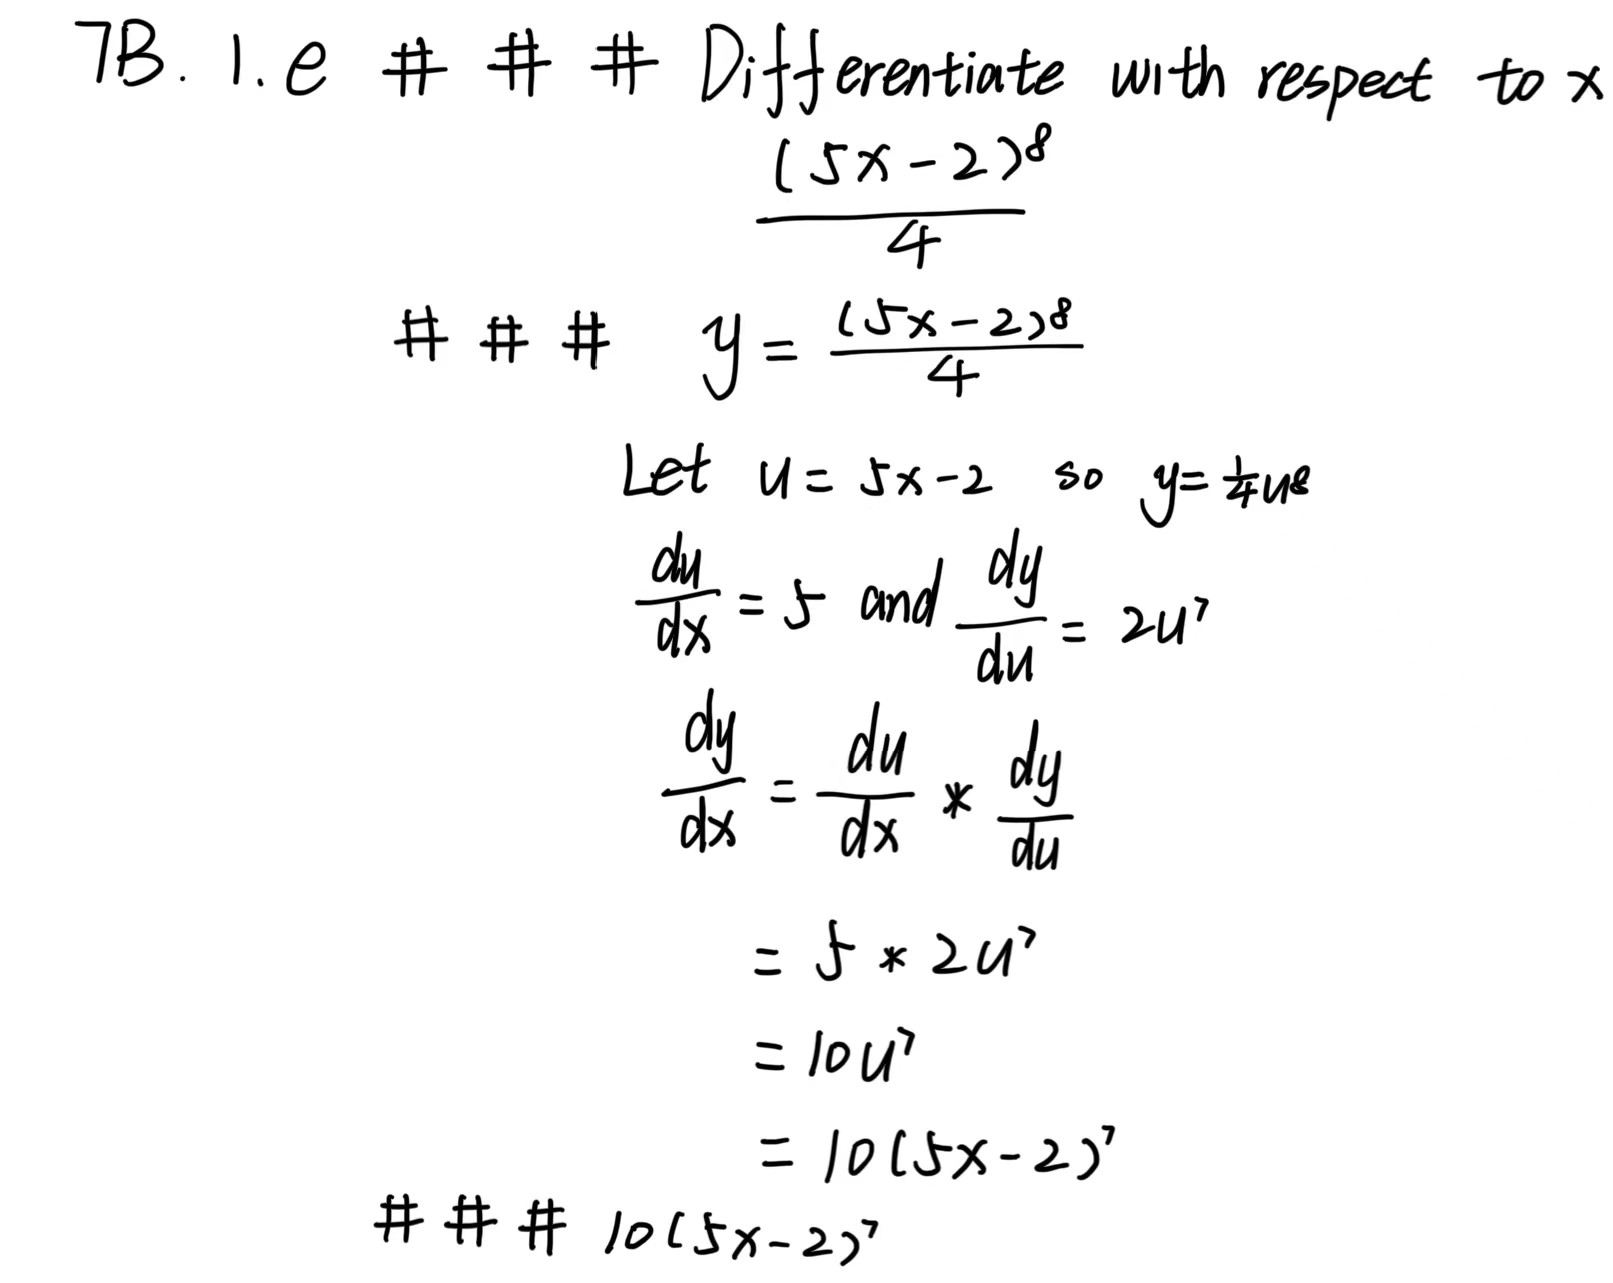 7B. 1.e # # # Differentiate with respect to x
(5x-2)⁸/4
# # # y = (5x-2)⁸/4
Let u = 5x-2 so y = 1/4 u⁸
du/dx = 5 and dy/du = 2u⁷
dy/dx = du/dx * dy/du
= 5 * 2u⁷
= 10u⁷
= 10(5x-2)⁷
# # # 10(5x-2)⁷